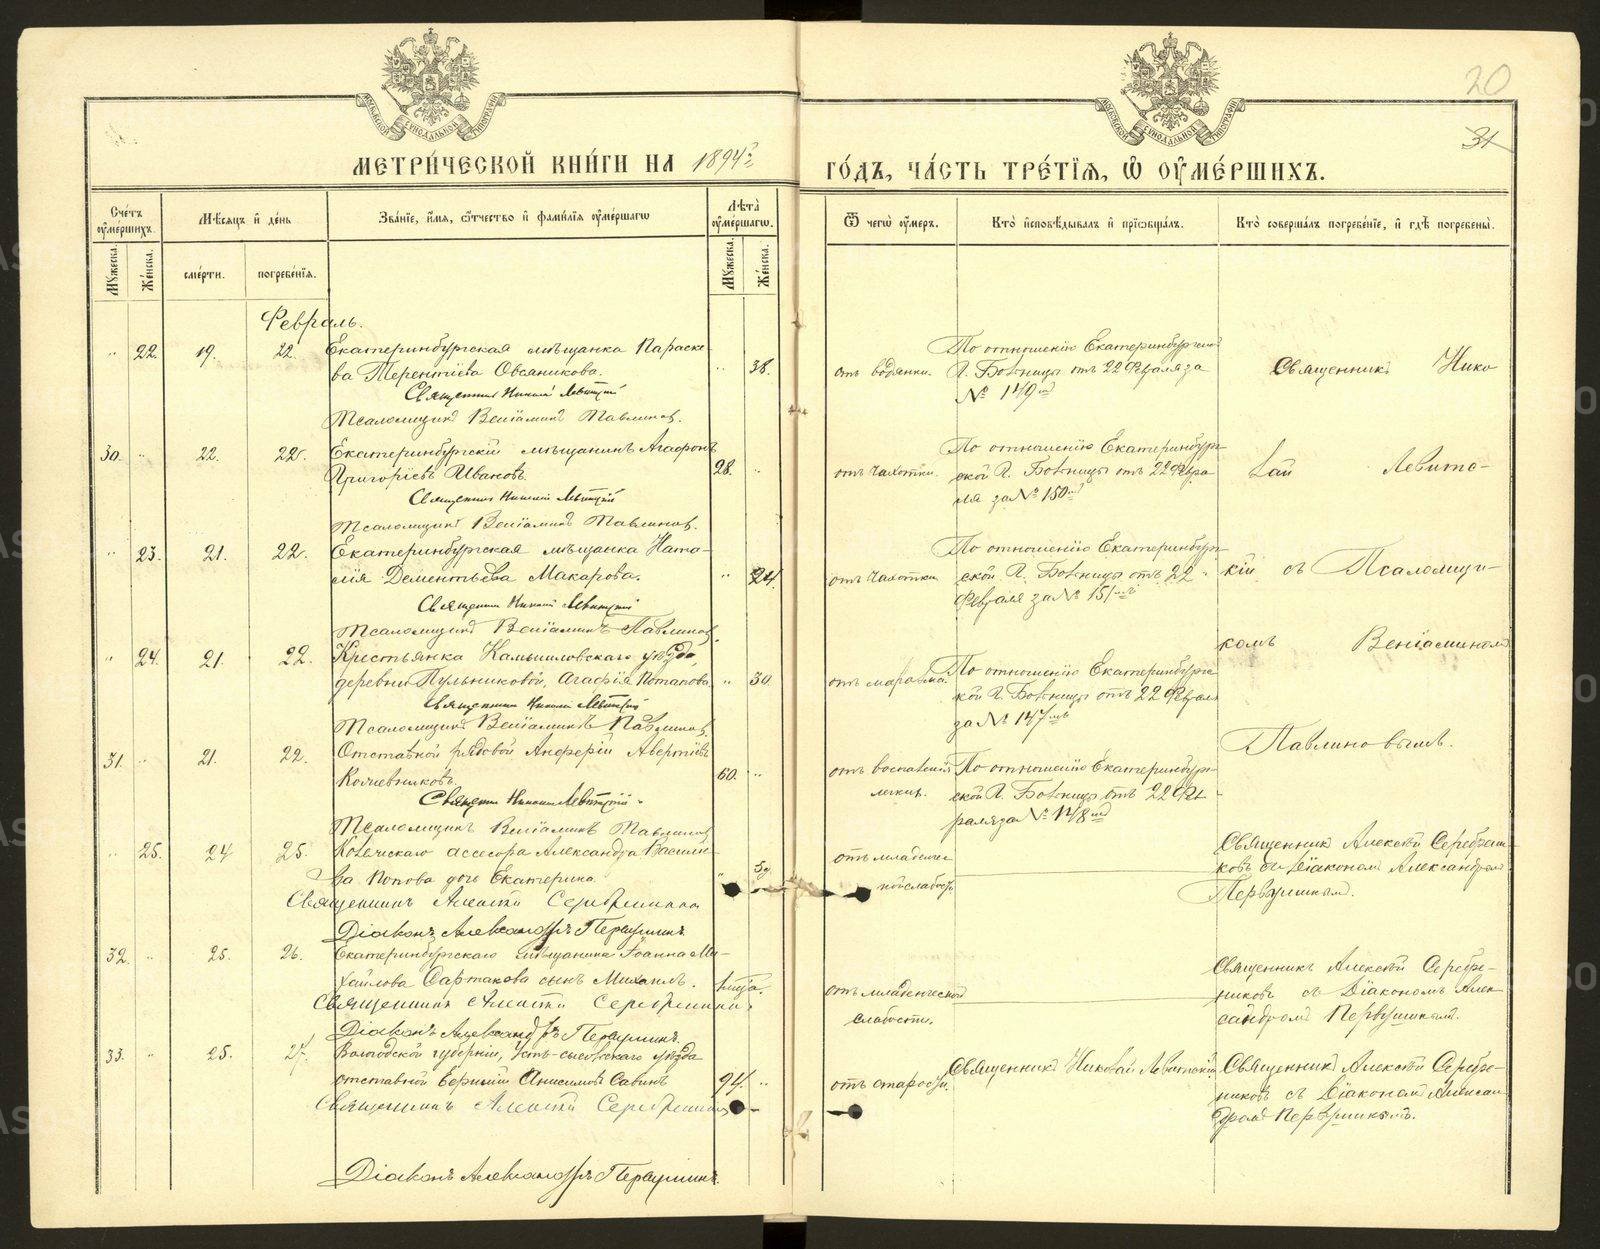 МЕТРИ́ЧЕСКОЙ КНИ́ГИ НА 1894й
ГО́ДЪ, ЧА́СТЬ ТРЕ́ТІѦ, Ѡ ОУМЕ́РШИХЪ.
20
31
МОСКОВСКОЙ СѴНОДАЛЬНОЙ ТИПОГРАФІИ
МОСКОВСКОЙ СѴНОДАЛЬНОЙ ТИПОГРАФІИ
Сче́тъ оуме́ршихъ.
Мѣ́сяцъ и҆ де́нь
Зва́нїе, и҆́мѧ, ѻ҆́тчество и҆ фами́лїѧ оуме́ршагѡ
Лѣ́та оуме́ршагѡ.
Мꙋ́жеска.
Же́нска.
сме́рти.
погребе́нїѧ.
Мꙋ́жеска.
Же́нска.
Ѿ чегѡ̀ оу́меръ.
Кто̀ и҆сповѣ́дывалъ и҆ прїѡбща́лъ.
Кто̀ соверша́лъ погребе́нїе, и҆ гдѣ̀ погребены̀.
Февраль.
" 22. 19. 22. Екатеринбургская мѣщанка Параске-
ва Терентіева Овсяникова. " 38.
Священникъ Николай Левитскій
Псаломщикъ Веніаминъ Павлиновъ.
отъ водянки.
По отношенію Екатеринбургской
Г. Больницы отъ 22 Февраля за
№ 149й
Священникъ Нико
30. " 22. 22. Екатеринбургскій мѣщанинъ Агафонъ
Григоріевъ Ивановъ. 28. "
Священникъ Николай Левитскій
Псаломщикъ Веніаминъ Павлиновъ.
отъ чахотки.
По отношенію Екатеринбург-
ской Г. Больницы отъ 22 Февра
ля за № 150й
лай Левитс-
" 23. 21. 22. Екатеринбургская мѣщанка Ната-
лія Дементьева Макарова. " 24.
Священникъ Николай Левитскій
Псаломщикъ Веніаминъ Павлиновъ.
отъ чахотки
По отношенію Екатеринбург-
ской Г. Больницы отъ 22
Февраля за № 151й
кій съ Псаломщи-
комъ Веніаминомъ
" 24. 21. 22. Крестьянка Камышловскаго уѣзда,
деревни Пульниковой, Агафія Потапова. " 30.
Священникъ Николай Левитскій
Псаломщикъ Веніаминъ Павлиновъ.
отъ маразма.
По отношенію Екатеринбургс-
кой Г. Больницы отъ 22 Февраля
за № 147мъ
Павлиновымъ.
31. " 21. 22. Отставной рядовой
60. "
Священникъ Николай Левитскій
Псаломщикъ Веніаминъ Павлиновъ
отъ воспаленія
легкихъ.
По отношенію Екатеринбург-
ской Г. Больницы отъ 22 Фев-
раля за № 148й
" 25. 24 25. Коллежскаго ассесора Александра Василье-
ва Попова дочь Екатерина
Священникъ Алексѣй Серебрениковъ
Діаконъ Александръ Первушинъ
отъ младенчес
кой слабости
Священникъ Алексѣй Серебрени-
ковъ съ Діакономъ Александромъ
Первушинымъ.
32. " 25. 26. Екатеринбургскаго мѣщанина Іоанна Ми-
хайлова Сартакова сынъ Михаилъ.
Священникъ Алексѣй Серебрениковъ
Діаконъ Александръ Первушинъ.
отъ младенческой
слабости.
Священникъ Алексѣй Серебре-
никовъ съ Діакономъ Алек-
сандромъ Первушинымъ.
33. " 25. 27. Вологодской губерніи, Усть-сысольскаго уѣзда
отставной Анисимовъ Савинъ 94. "
Священникъ Алексѣй Серебрениковъ
Діаконъ Александръ Первушинъ.
отъ старости.
Священникъ Николай Левитскій.
Священникъ Алексѣй Серебре-
никовъ съ Діакономъ Алексан-
дромъ Первушинымъ.